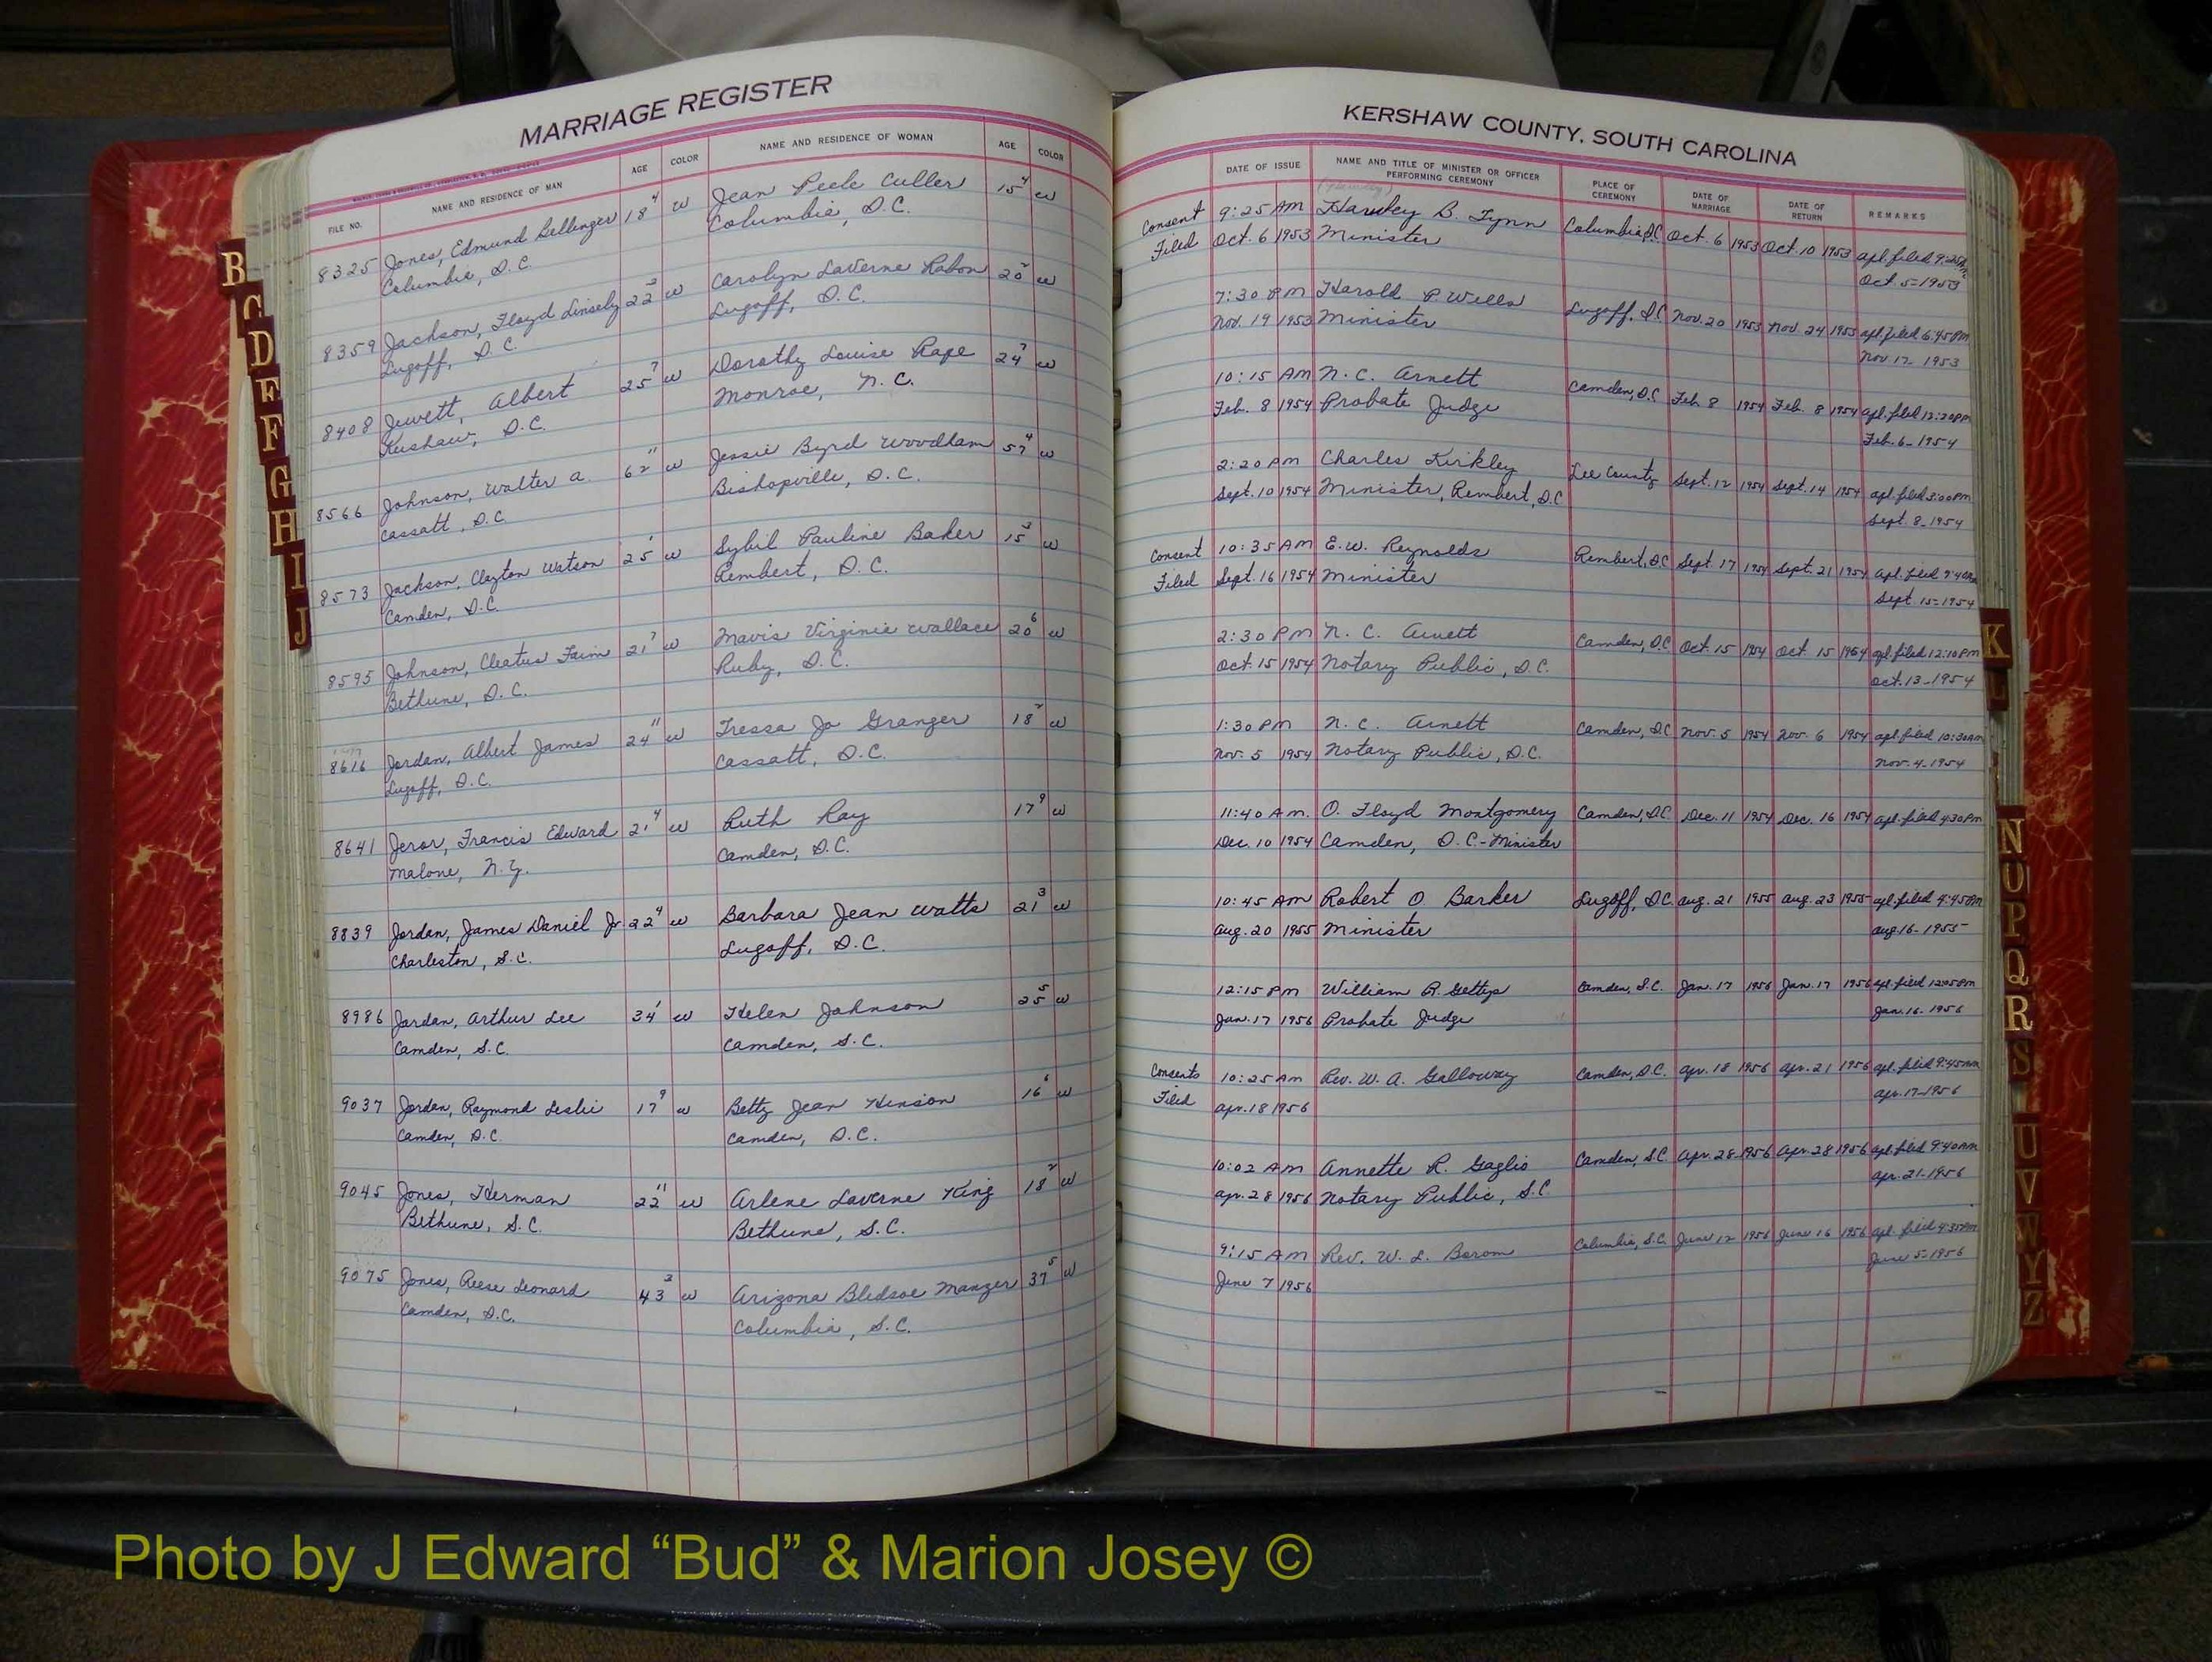 MARRIAGE REGISTER
FILE NO. NAME AND RESIDENCE OF MAN AGE COLOR NAME AND RESIDENCE OF WOMAN AGE COLOR
8325 Jones, Edmund Bellinger 18 4 W Jean Peele Culler 15 4 W
Columbia, S.C. Columbia, S.C.
8359 Jackson, Floyd Linsely 22 2 W Carolyn LaVerne Rabon 20 2 W
Lugoff, S.C. Lugoff, S.C.
8408 Jewett, Albert 25 7 W Dorothy Louise Rape 24 7 W
Kershaw, S.C. Monroe, N.C.
8566 Johnson, Walter A. 62 11 W Jessie Byrd Woodham 57 4 W
Cassatt, S.C. Bishopville, S.C.
8573 Jackson, Clayton Watson 25 1 W Sybil Pauline Baker 15 3 W
Camden, S.C. Rembert, S.C.
8595 Johnson, Cleatus 21 7 W Mavis Virginia Wallace 20 6 W
Bethune, S.C. Ruby, S.C.
8616 Jordan, Albert James 24 11 W Tressa Jo Granger 18 2 W
Lugoff, S.C. Cassatt, S.C.
8641 Jeror, Francis Edward 21 4 W Ruth Ray 17 9 W
Malone, N.Y. Camden, S.C.
8839 Jordan, James Daniel Jr 22 4 W Barbara Jean Watts 21 3 W
Charleston, S.C. Lugoff, S.C.
8986 Jordan, Arthur Lee 34 1 W Helen Johnson 25 5 W
Camden, S.C. Camden, S.C.
9037 Jordan, Raymond Leslie 17 9 W Betty Jean Hinson 16 6 W
Camden, S.C. Camden, S.C.
9045 Jones, Herman 22 11 W Arlene Laverne King 18 2 W
Bethune, S.C. Bethune, S.C.
9075 Jones, Reese Leonard 43 3 W Arizona Bledsoe Manzer 37 5 W
Camden, S.C. Columbia, S.C.
KERSHAW COUNTY, SOUTH CAROLINA
DATE OF ISSUE NAME AND TITLE OF MINISTER OR OFFICER PERFORMING CEREMONY PLACE OF CEREMONY DATE OF MARRIAGE DATE OF RETURN REMARKS
Consent 9:25 AM Hawley B. Lynn Columbia, S.C. Oct. 6 1953 Oct. 10 1953 apl. filed 9:25
Filed Oct. 6 1953 Minister Oct. 5-1953
7:30 PM Harold P. Wells Lugoff, S.C. Nov. 20 1953 Nov. 24 1953 apl. filed 6:45 PM
Nov. 19 1953 Minister Nov 17 1953
10:15 AM N.C. Arnett Camden, S.C. Feb. 8 1954 Feb. 8 1954 apl. filed 12:20 PM
Feb. 8 1954 Probate Judge Feb. 6-1954
2:20 PM Charles Kirkley Lee County Sept. 12 1954 Sept. 14 1954 apl. filed 3:00 PM
Sept. 10 1954 Minister, Rembert, S.C. Sept. 8-1954
Consent 10:35 AM E.W. Reynolds Rembert, S.C. Sept. 17 1954 Sept. 21 1954 apl. filed 9:40 AM
Filed Sept. 16 1954 Minister Sept. 15-1954
2:30 PM N.C. Arnett Camden, S.C. Oct. 15 1954 Oct. 15 1954 apl. filed 12:10 PM
Oct. 15 1954 Notary Public, S.C. Oct. 13-1954
1:30 PM N.C. Arnett Camden, S.C. Nov. 5 1954 Nov. 6 1954 apl. filed 10:30 AM
Nov. 5 1954 Notary Public, S.C. Nov. 4-1954
11:40 A.M. O. Floyd Montgomery Camden, S.C. Dec. 11 1954 Dec. 16 1954 apl. filed 4:30 PM
Dec. 10 1954 Camden, S.C. - Minister
10:45 AM Robert O Barker Lugoff, S.C. Aug. 21 1955 Aug. 23 1955 apl. filed 4:45 PM
Aug. 20 1955 Minister Aug. 16-1955
12:15 PM William R. Gettys Camden, S.C. Jan. 17 1956 Jan. 17 1956 apl. filed 12:05 PM
Jan. 17 1956 Probate Judge Jan. 16-1956
Consents 10:25 AM Rev. W.A. Galloway Camden, S.C. Apr. 18 1956 Apr. 21 1956 apl. filed 9:45 AM
Filed Apr. 18 1956 Apr. 17-1956
10:02 AM Annette R. Gaglio Camden, S.C. Apr. 28-1956 Apr. 28 1956 apl. filed 9:40 AM
Apr. 28 1956 Notary Public, S.C Apr. 21-1956
9:15 AM Rev. W.L. Borom Columbia, S.C. June 12 1956 June 16 1956 apl. filed 4:35
June 7 1956 June 5-1956
B
C
D
F
G
H
I
J
K
L
N
O
P
Q
R
S
U
V
W
Y
Z
Photo by J Edward “Bud” & Marion Josey ©